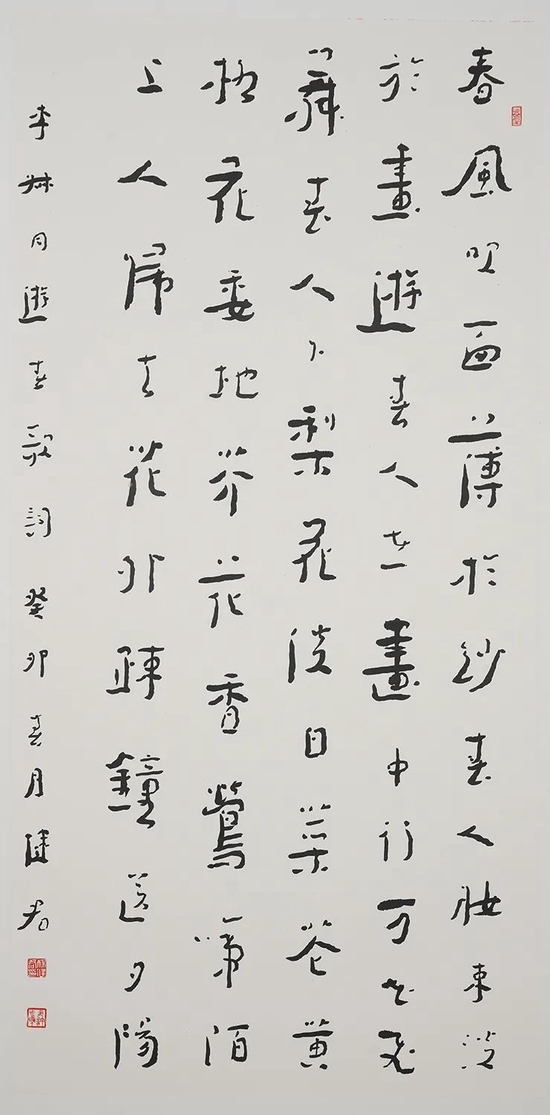 春風吹面薄於紗春人妝束淡
於畫遊春人在畫中行万花飛
舞春人下梨花淡白菜花黄
柳花委地芥花香鶯啼陌
上人歸去花外疎鐘送夕陽
李叔同遊春歌詞癸卯春月